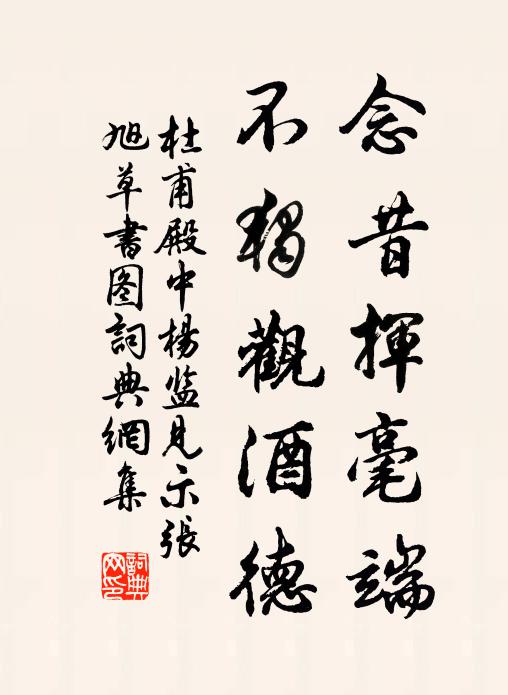 念昔揮毫端
不獨觀酒德
杜甫殿中楊监見示張
旭草書图詞典網集
詞典网印